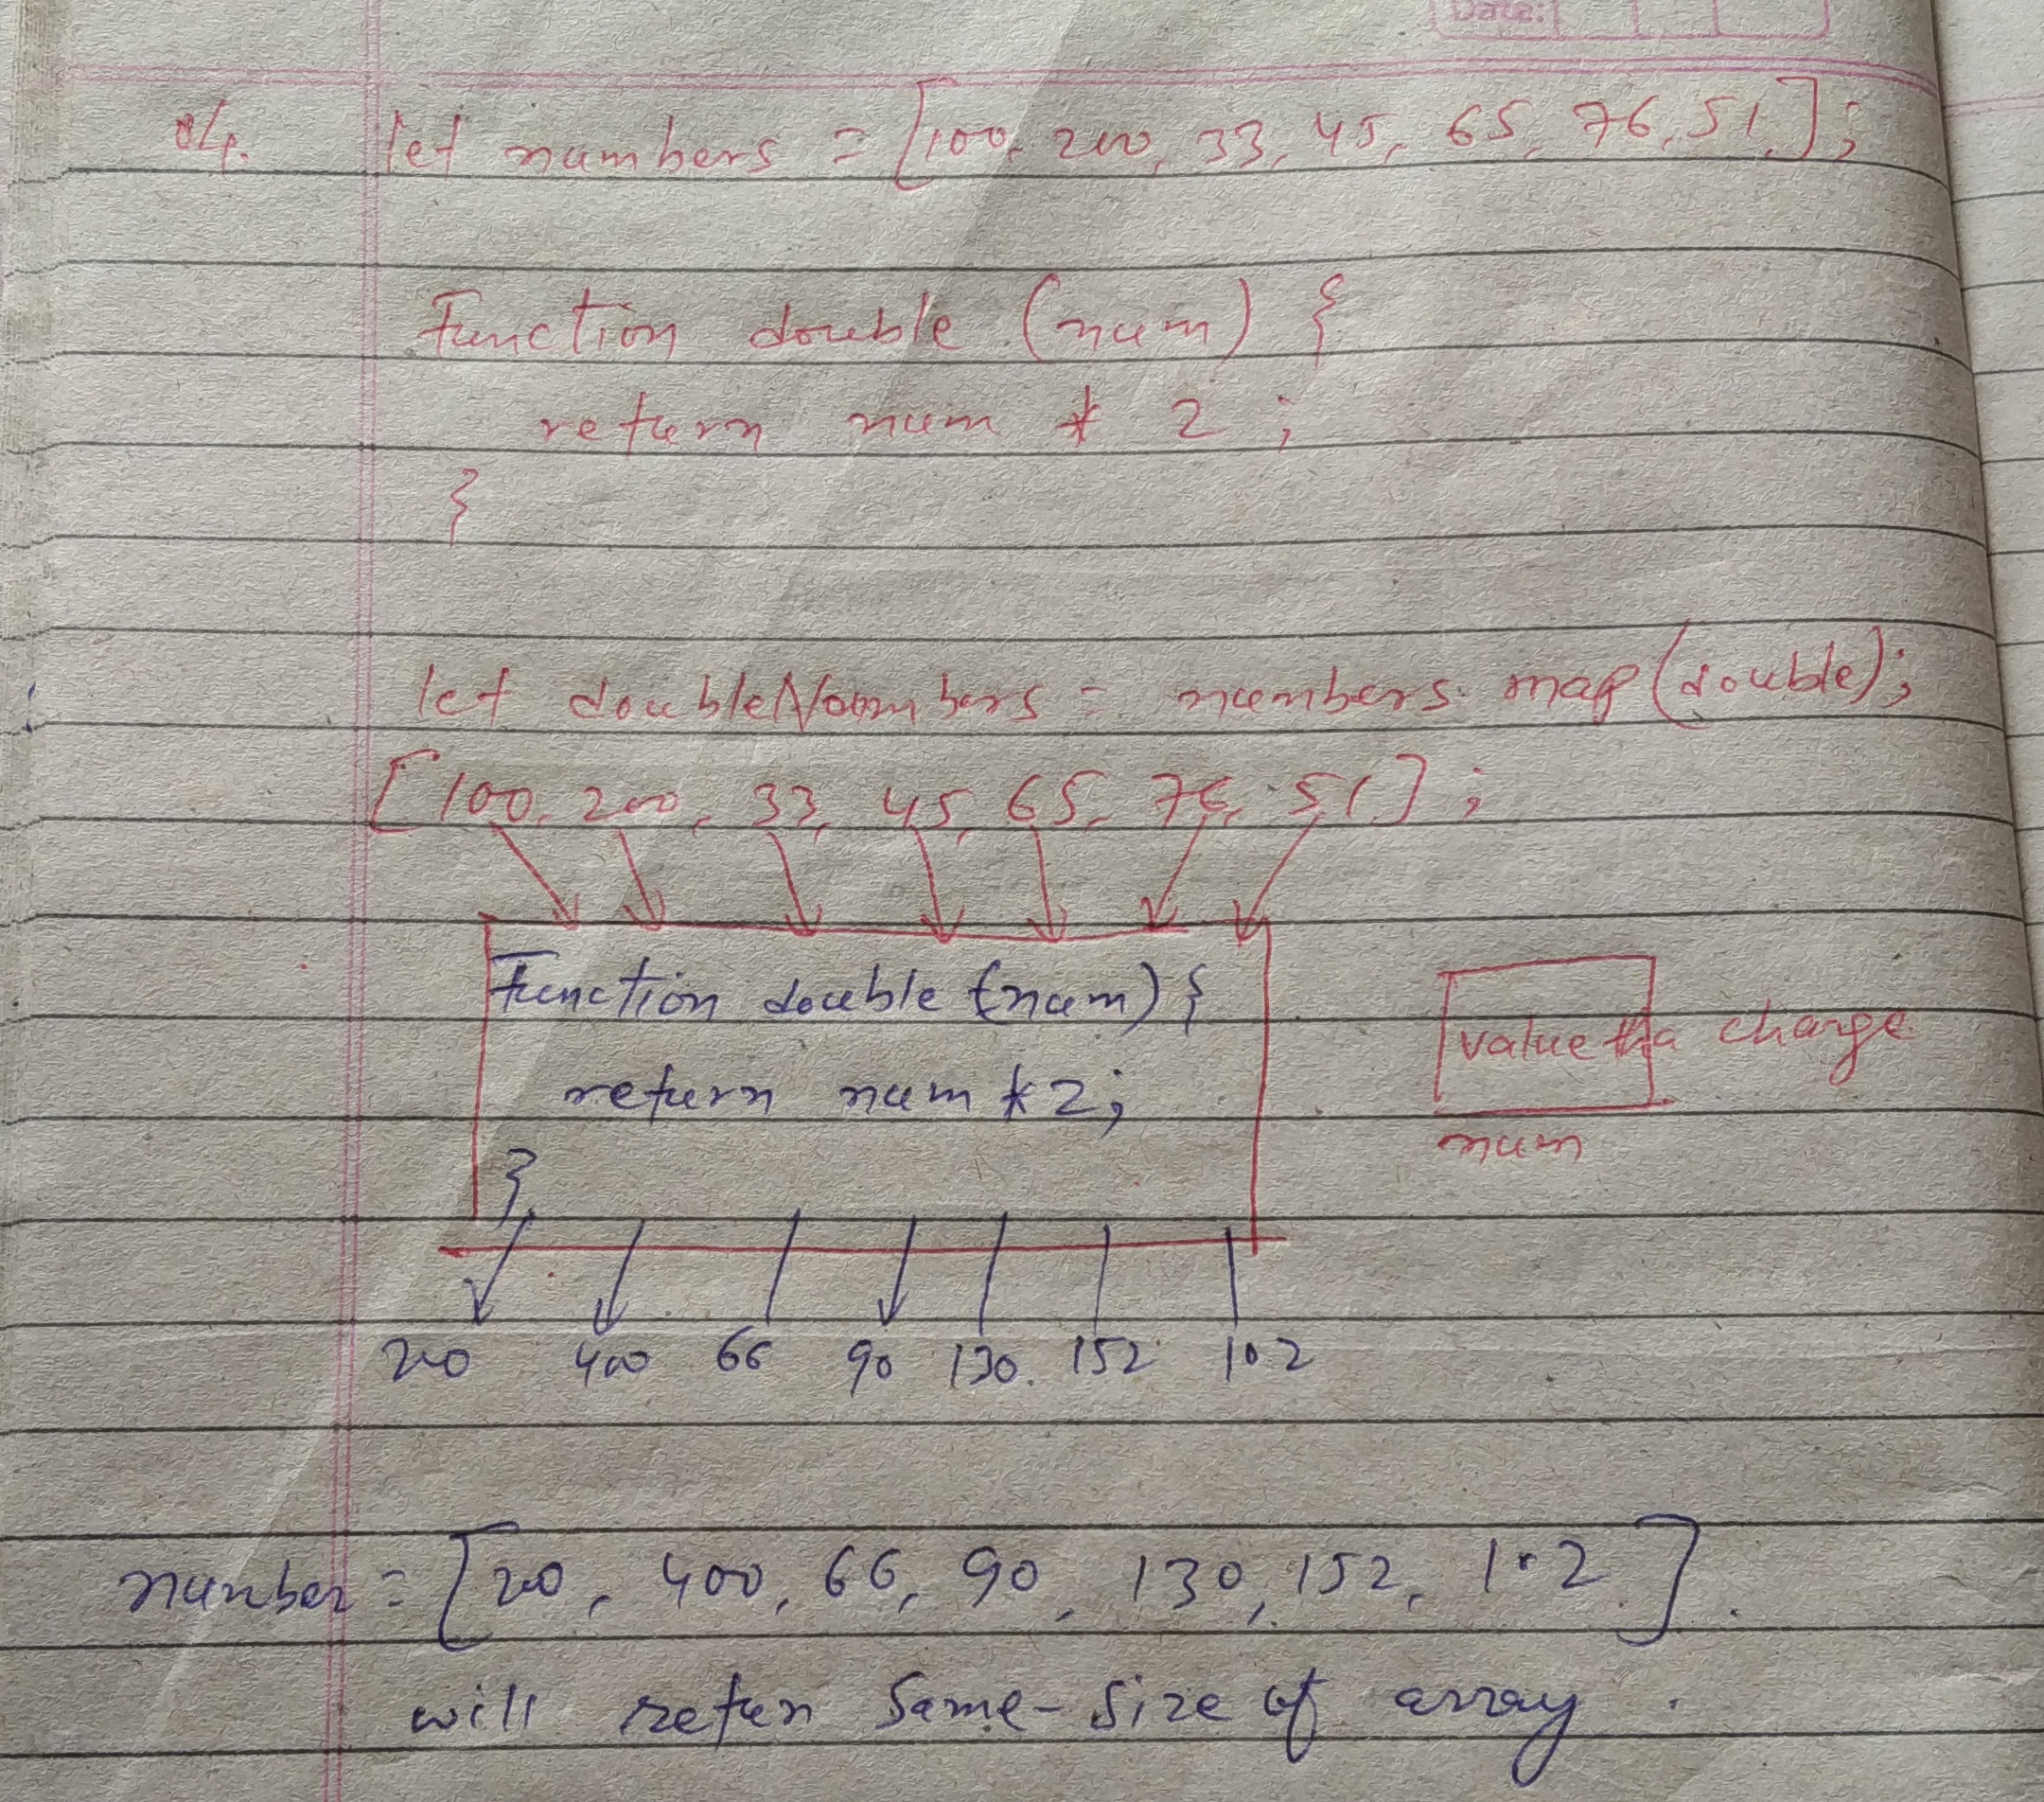 Date:
04. let numbers = [100, 200, 33, 45, 65, 76, 51,];
Function double (num) {
return num * 2 ;
}
let doubleNoombers = numbers. map(double);
[100, 200, 33, 45, 65, 76, 51] ;
Function double (num) {
return num * 2;
}
value tha change
num
200 400 66 90 130. 152 102
number = [200, 400, 66, 90, 130, 152, 102].
will retun Same-Size of array .